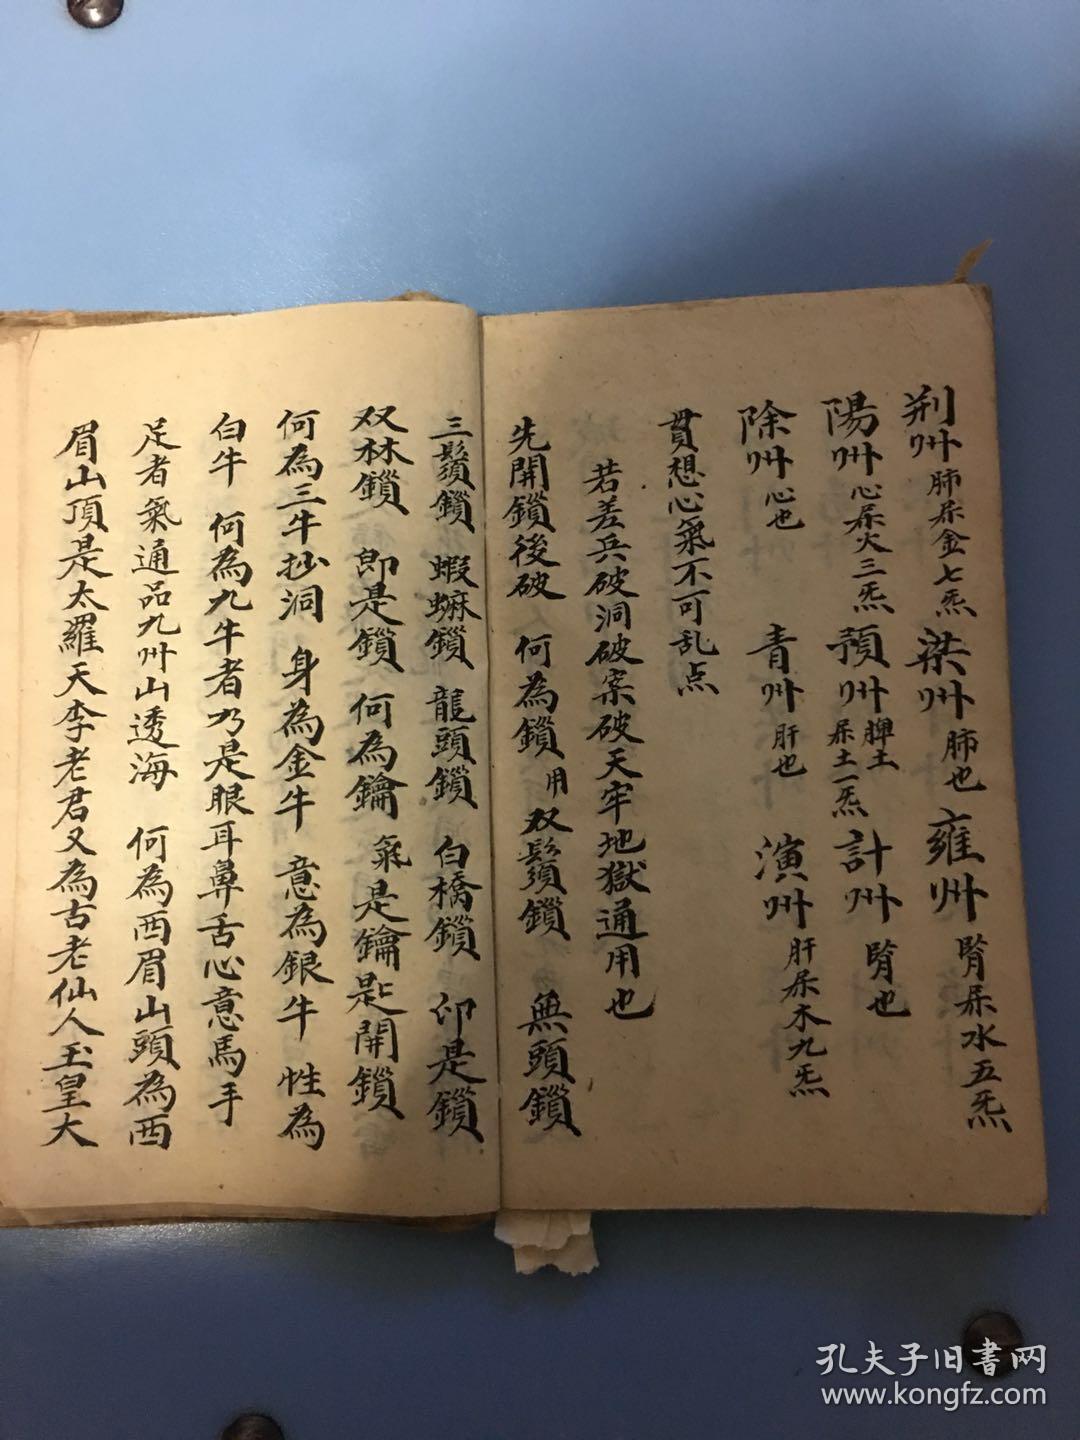 荆州 肺屎金七炁 梁州 肺也 雍州 腎屎水五炁
陽州 心屎火三炁 預州 脾土屎土一炁 計州 腎也
除州 心也 青州 肝也 演州 肝屎木九炁
貫想心氣不可乱点
若差兵破洞破案破天牢地獄通用也
先開鎖後破 何為鎖 用双鬚鎖 無頭鎖
三鬚鎖 蝦蟆鎖 龍頭鎖 白橋鎖 卯是鎖
双林鎖 即是鎖 何為鑰 氣是鑰匙開鎖
何為三牛抄洞 身為金牛 意為銀牛 性為
白牛 何為九牛者乃是眼耳鼻舌心意馬手
足者氣通品九州山透海 何為西眉山頭為西
眉山頂是太羅天李老君又為古老仙人玉皇大
孔夫子旧書网
www.kongfz.com